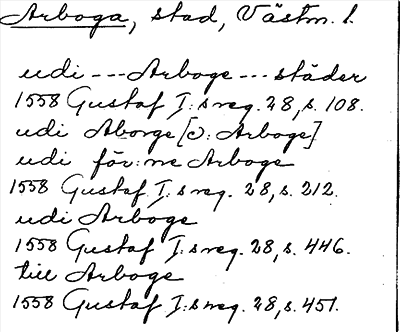 Arboga, stad, Västm. l.
udi --- Arboge --- städer
1558 Gustaf I:s reg. 28, s. 108.
udi Aborge [ɔ: Arboge]
udi för:ne Arboge
1558 Gustaf I:s reg. 28, s. 212.
udi Arboge
1558 Gustaf I:s reg. 28, s. 446.
till Arboge
1558 Gustaf I:s reg. 28, s. 451.